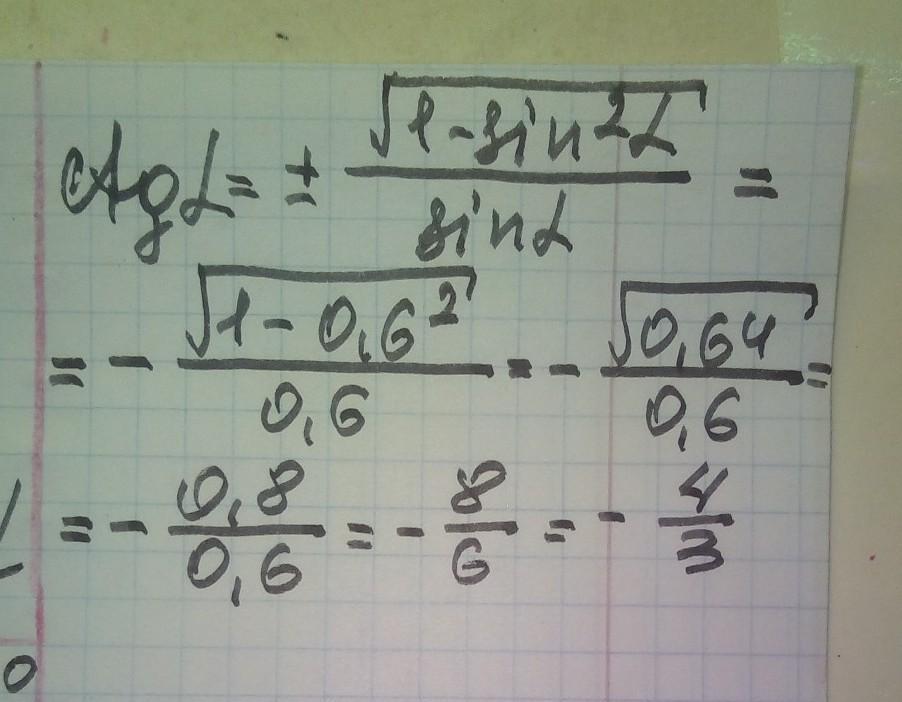 ctg α = ± √(1 - sin²α) / sin α =
= - √(1 - 0,6²) / 0,6 = - √0,64 / 0,6 =
= - 0,8 / 0,6 = - 8/6 = - 4/3
0